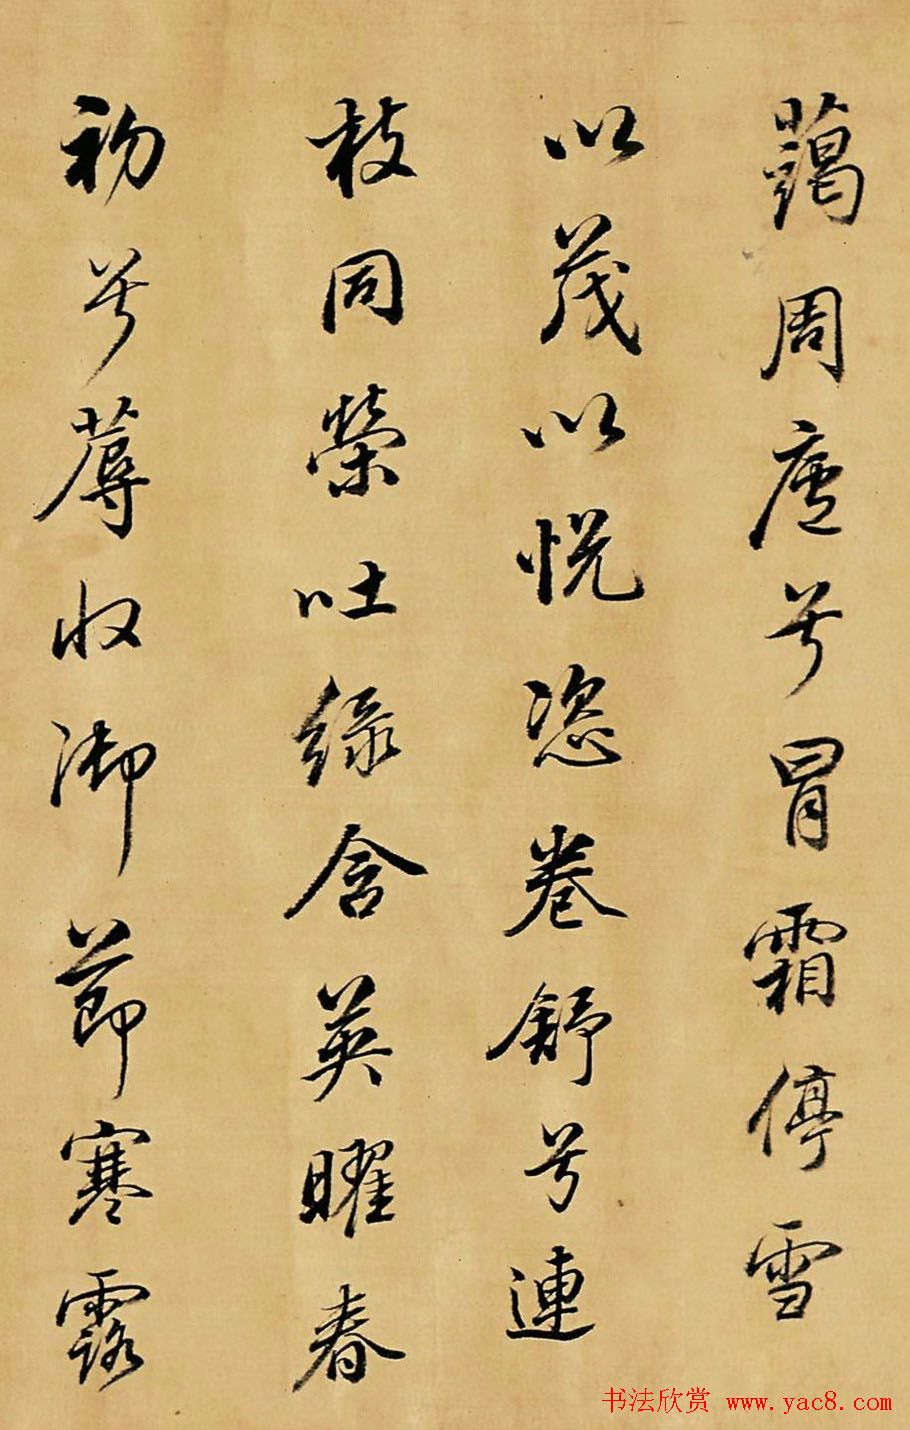 藹周廬兮冒霜停雪
以茂以悦恣卷舒兮連
枝同榮吐緑含英曜春
初兮蓐收御節寒露
书法欣赏 www.yac8.com